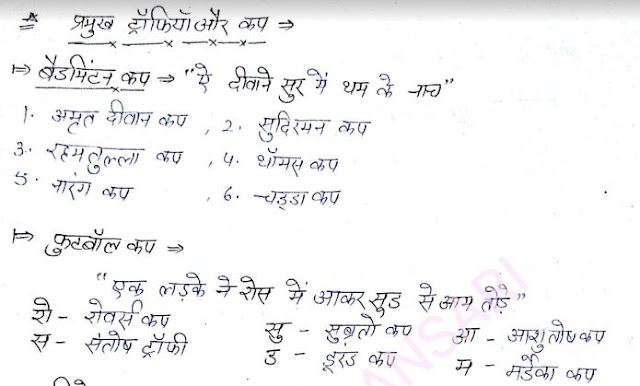 * प्रमुख ट्रॉफियाँ और कप ⇒
⇒ बैडमिंटन कप ⇒ "ऐ दीवाने सुर में थम के नाच"
1. अमृत दीवान कप , 2. सुदिरमन कप
3. रहमतुल्ला कप , 4. थॉमस कप
5. नारंग कप , 6. चड्डा कप
⇒ फुटबॉल कप ⇒
"एक लड़के ने रोस में आकर सुड से आम तोड़े"
रो - रोवर्स कप सु - सुब्रतो कप आ - आशुतोष कप
स - संतोष ट्रॉफी ड - डूरंड कप म - मर्डेका कप
ANSARI